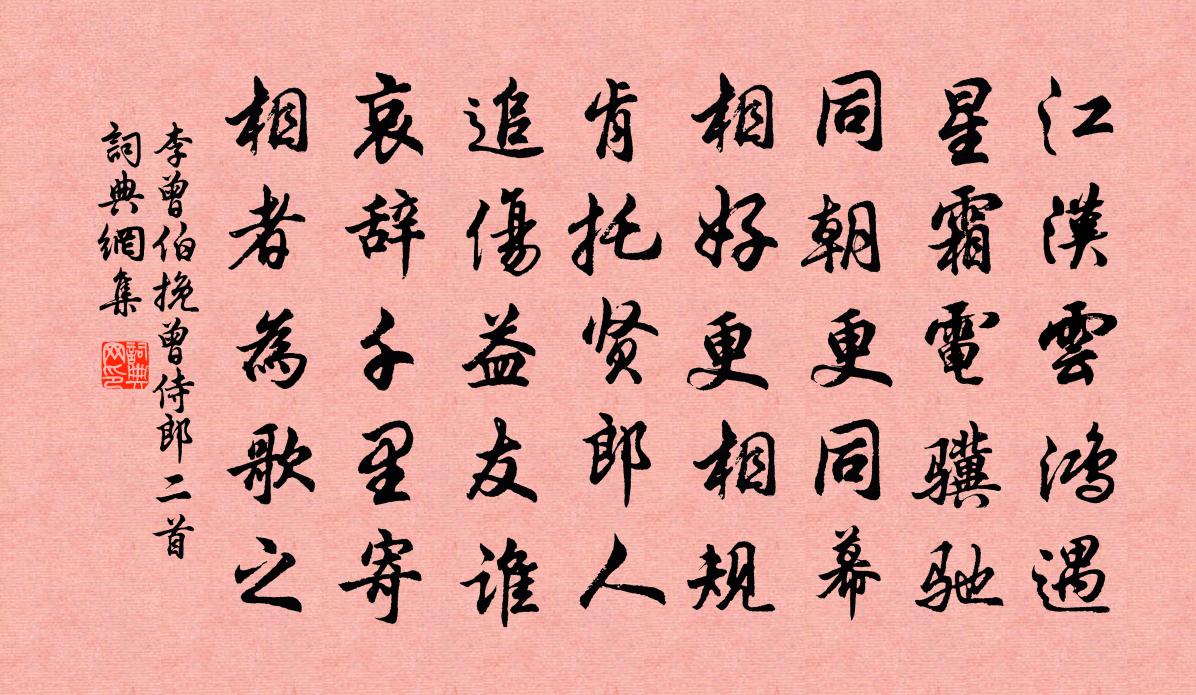 江漢雲鴻遇
星霜電骥驰
同朝更同幕
相好更相規
肯托贤郎人
追傷益友谁
哀辞千里寄
相者為歌之
李曾伯挽曾侍郎二首
詞典網集
詞典网印